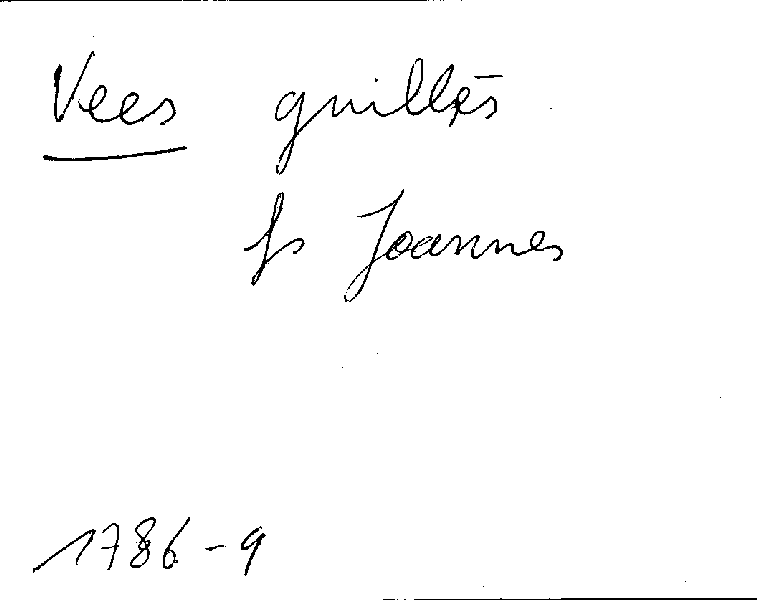 Vees guillēs
fs Joannes
1786-9